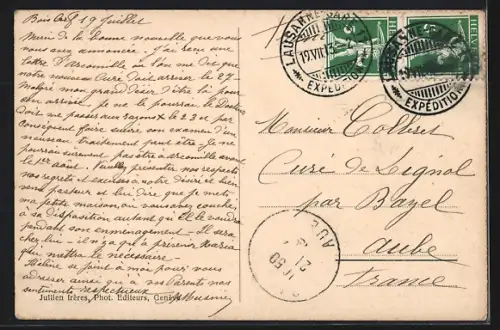 Bois Cerf 19 Juillet
Merci de la bonne nouvelle que vous
nous avez annoncée. J'ai reçu une
lettre d'Arconville où l'on me dit que
notre nouveau Curé doit arriver le 27.
Malgré mon grand désir d'être là pour
son arrivée je ne le pourrai le Docteur
doit me passer aux rayons X le 23 et par
conséquent faire suivre son examen d'un
nouveau traitement peut être. Je ne
pourrai sûrement pas être à Arconville avant
le 1er Août. Veuillez présenter nos respects
nos regrets et surtout notre désir et bien
venu pasteur et lui dire que je mets
ma petite maison, où vous avez couché,
à sa disposition autant qu'il le voudra
pendant son emménagement — Il sera
chez lui — il n'a qu'à prévenir Maria
qui mettra le nécessaire —
Hélène se joint à moi pour vous
adresser ainsi qu'à vos Parents nos
sentiments respectueux
Jullien frères, Phot. Editeurs, Genève
LAUSANNE GARE
19.VII.13
EXPÉDITION
HELVETIA
5
HELVETIA
5
LAUSANNE GARE
19.VII.13
EXPÉDITION
Monsieur Colleret
Curé de Lignol
par Bayel
Aube
France
50
21
AUBE